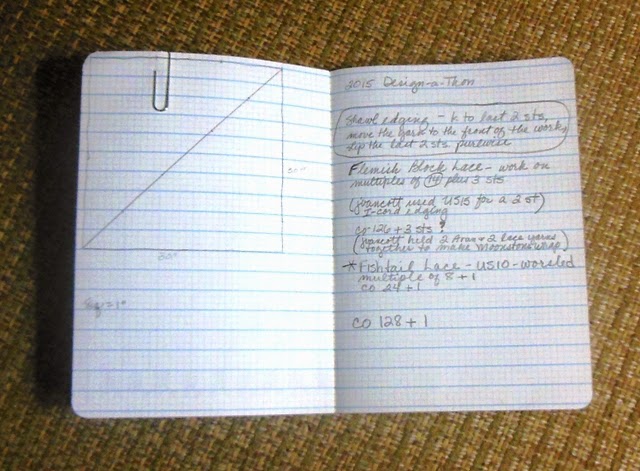 30"
30"
Sq = 1"
2015 Design-a-Thon
Shawl edging - K to last 2 sts,
move the yarn to the front of the work,
slip the last 2 sts purlwise
Flemish Block Lace - work on
multiples of 14 plus 3 sts
(Wancott used US15 for a 2 st)
I-cord edging
CO 126 + 3 sts ?
held 2 Aran + 2 lace yarns
together to make Moonstone wrap)
*Fishtail Lace - US10 - worsted
multiple of 8 + 1
CO 24 + 1
CO 128 + 1